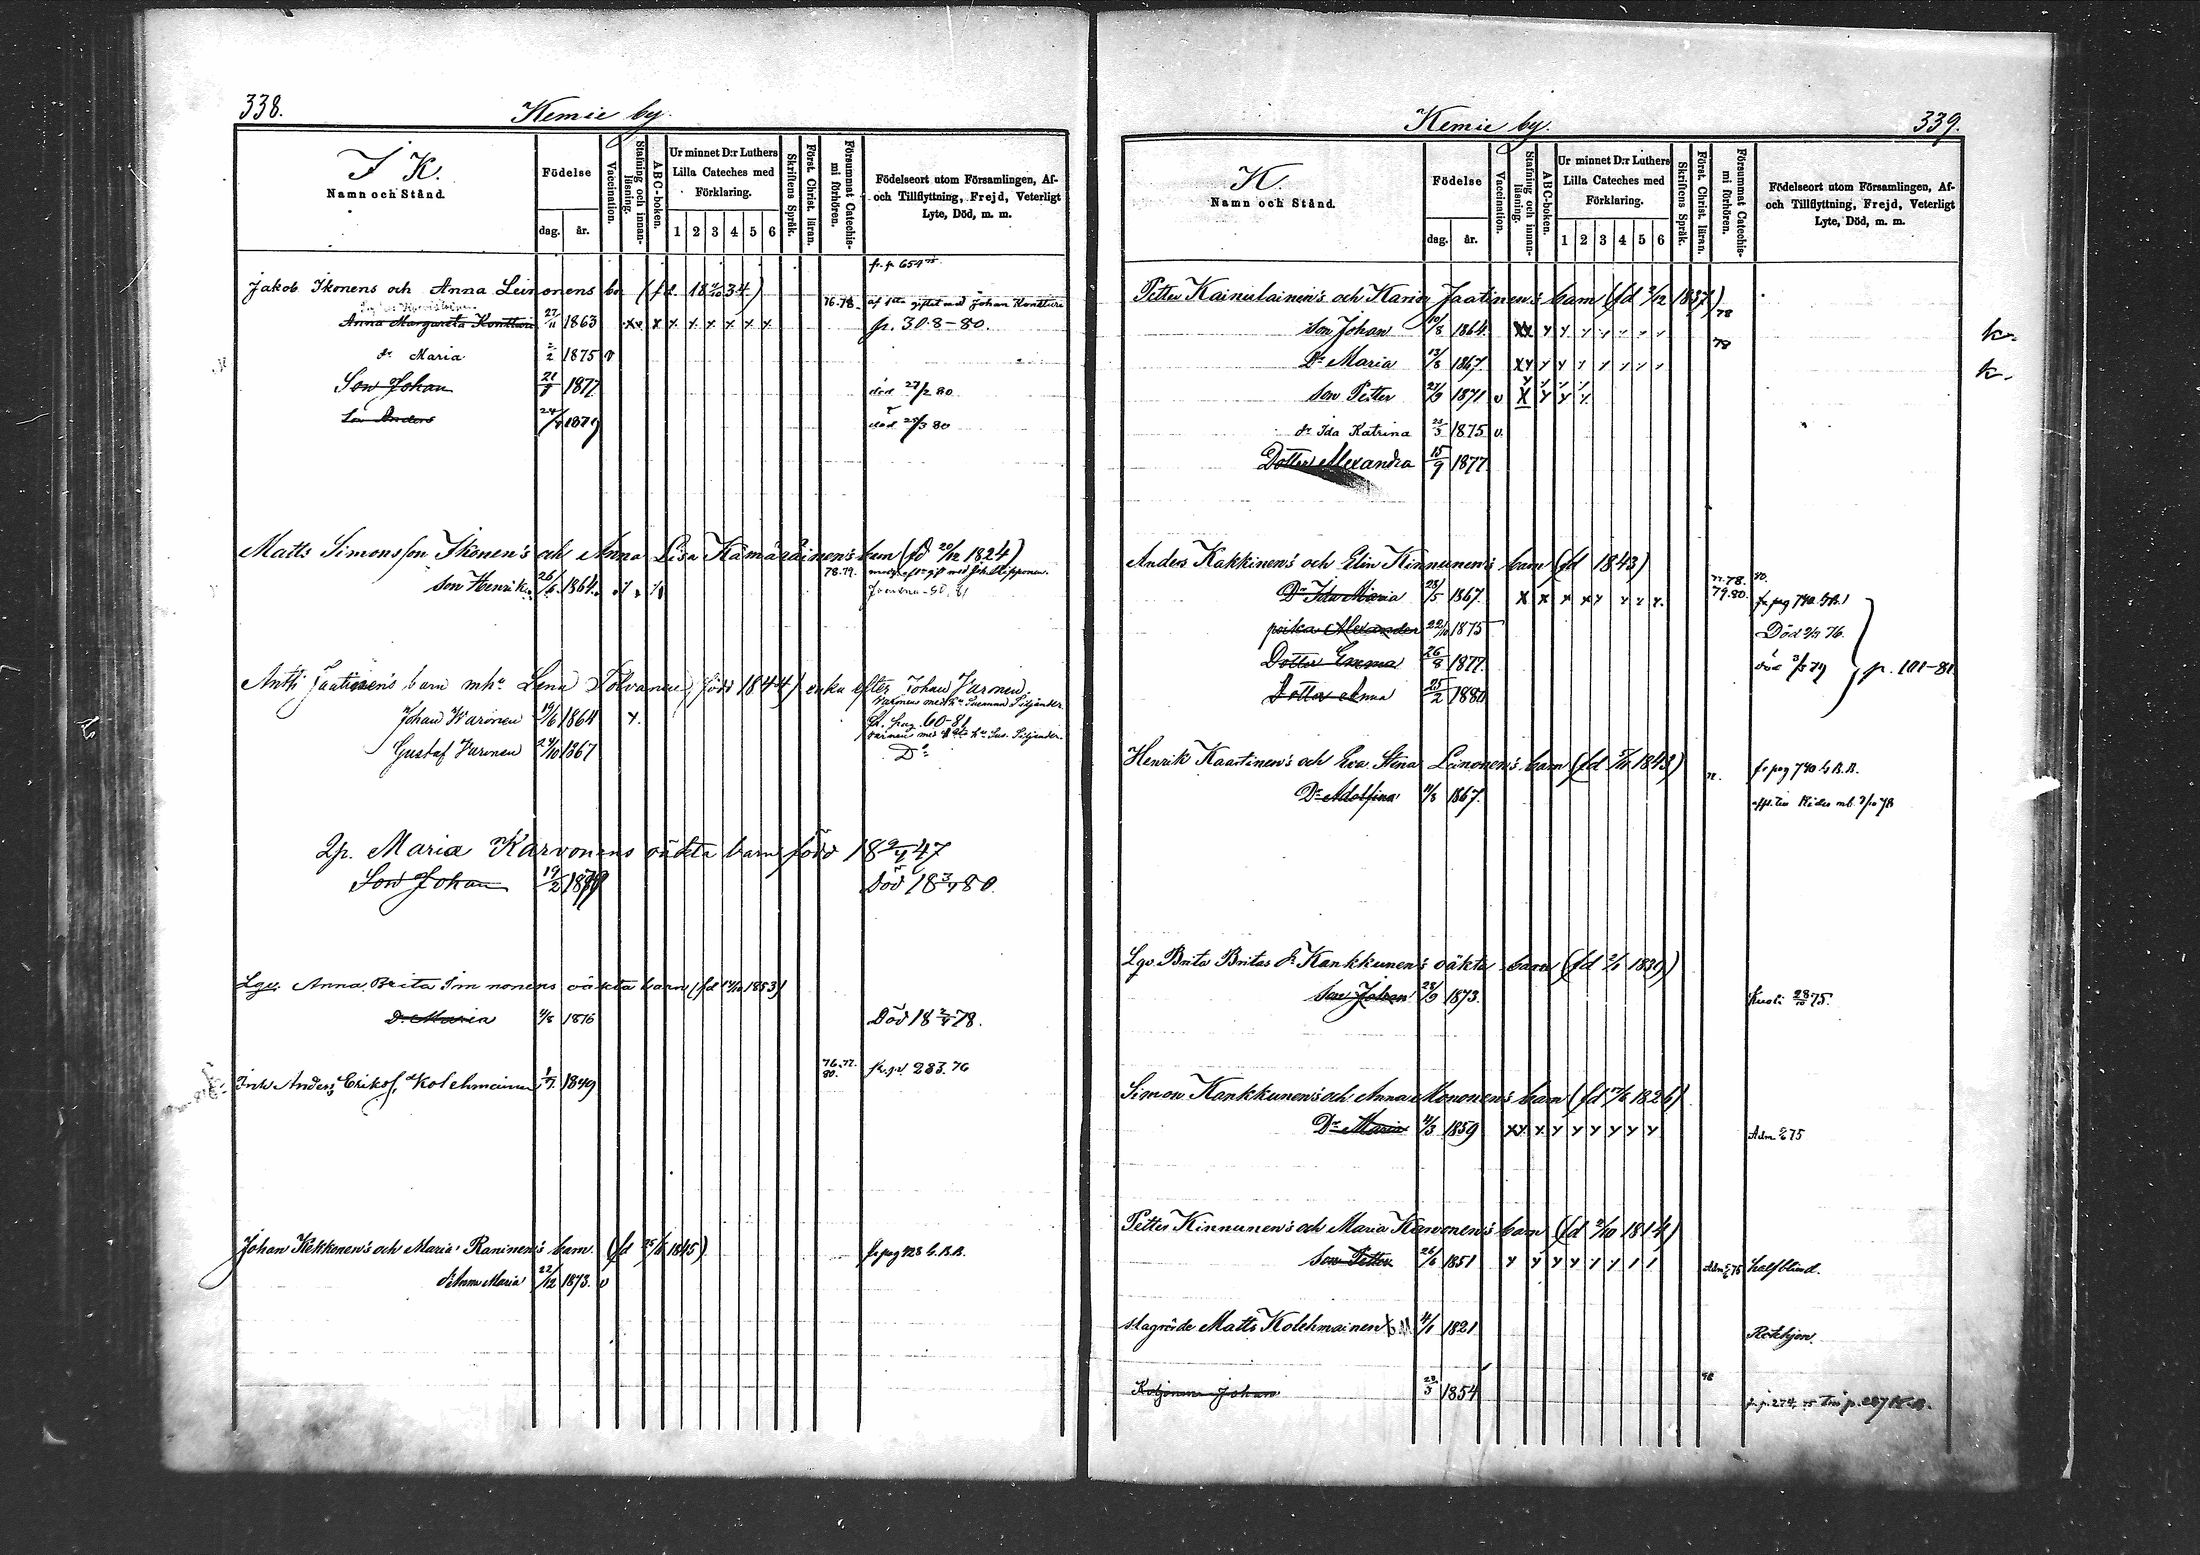 338.
Kemie by.
I K.
Namn och Stånd.
Födelse
dag. år.
Vaccination.
Stafning och innan-läsning.
ABC-boken.
Ur minnet D:r Luthers
Lilla Cateches med
Förklaring.
1 2 3 4 5 6
Skriftens Språk.
Först. Christ. läran.
Försummat Catechis-mi förhören.
Födelseort utom Församlingen, Af-
och Tillflyttning, Frejd, Veterligt
Lyte, Död, m. m.
fr. p. 654
Jakob Ikonens och Anna Leinonens bn
76.78. gift med Johan Kontturi
Anna Margareta Kontturi 27/11 1863 p. 308-80.
dr Maria 2/2 1875 v
Son Johan 21/8 1877 död 27/2 80
Son Anders 1879 död 80
Matts Simonsson Ikonen's och Anna Lisa Kämäräinen's barn (fd 20/12 1824)
son Henrik 26/6 1864 78.79.
Antti Jaatinen's barn m h Lena Tolvanen, född 1844) enka efter Johan Varonen
Johan Varonen 19/6 1864 fr. pag. 60-81
Gustaf Varonen 24/10 1867 Do
Maria Karvonens oäkta barn född 18 9/4 47
Son Johan 19/2 1879 Död 18 3/7 80.
Anna Brita Immonens oäkta barn, (fd 1853)
Dr Maria 4/8 1876 Död 18 78.
Inh Anders Eriks. Kolehmainen 1/7 1849 76.77. 80. fr. p. 283. 76
Johan Kekkonen's och Maria Raninen's barn. (fd 25/8 1845) fr pag 428 k. B.B.
dr Anna Maria 22/12 1873. v
339.
Kemie by.
K.
Namn och Stånd.
Födelse
dag. år.
Vaccination.
Stafning och innan-läsning.
ABC-boken.
Ur minnet D:r Luthers
Lilla Cateches med
Förklaring.
1 2 3 4 5 6
Skriftens Språk.
Först. Christ. läran.
Försummat Catechis-mi förhören.
Födelseort utom Församlingen, Af-
och Tillflyttning, Frejd, Veterligt
Lyte, Död, m. m.
Petter Kainulainen's och Karin Jaatinen's barn (fd 2/12 1837)
son Johan 10/8 1864. 78 k.
Dr Maria 13/8 1867. 78 k.
son Petter 27/9 1871 v
dr Ida Katrina 23/3 1875 v.
Dotter Alexandra 15/9 1877.
Anders Kakkinen's och Elin Kinnunen's barn (fd 1843)
Dr Ida Maria 28/5 1867. 77.78. 79.80. fr pag 740
poika Alexander 22/10 1875 Död 76.
Dotter Emma 26/8 1877. död 3/5 79 p. 101-81
Dotter Anna 25/2 1880
Henrik Kaartinen's och Eva Stina Leinonen's barn (fd 1843) fr pag 740 k B.B.
Dr Adolfina 11/8 1867.
Brita Britas dr Kankkunen's oäkta barn (fd 1830)
Son Johan 28/9 1873. Kuoli 28/10 75.
Simon Kankkunen's och Anna Mononen's barn (fd 17/6 1826)
Dr Maria 4/3 1859 Adm 75
Petter Kinnunen's och Maria Karvonen's barn (fd 2/10 1814)
Son Petter 26/6 1851 Adm 75 halfblind.
slagrörde Matts Kolehmainen 4/1 1821 Rotehjon.
Kotjonen Johan 29/3 1854 f. p. 274, 75 till p. 287